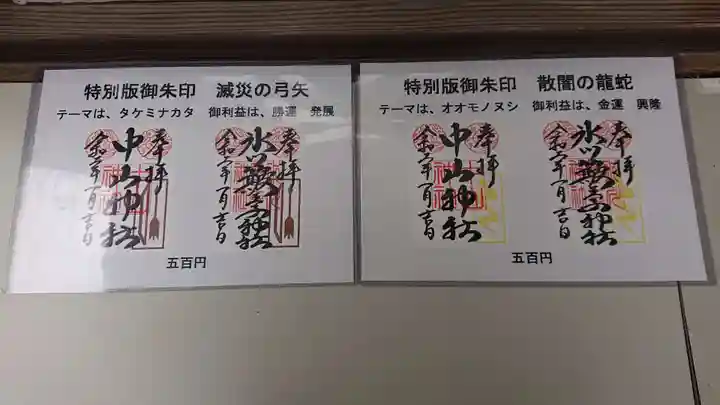 特別版御朱印　滅災の弓矢
テーマは、タケミナカタ　御利益は、勝運　発展
奉拝
中山神社
令和二年一月吉日
奉拝
氷川
神社
令和二年一月吉日
五百円
特別版御朱印　散闇の龍蛇
テーマは、オオモノヌシ　御利益は、金運　興隆
奉拝
中山神社
令和二年一月吉日
奉拝
氷川
神社
令和二年一月吉日
五百円